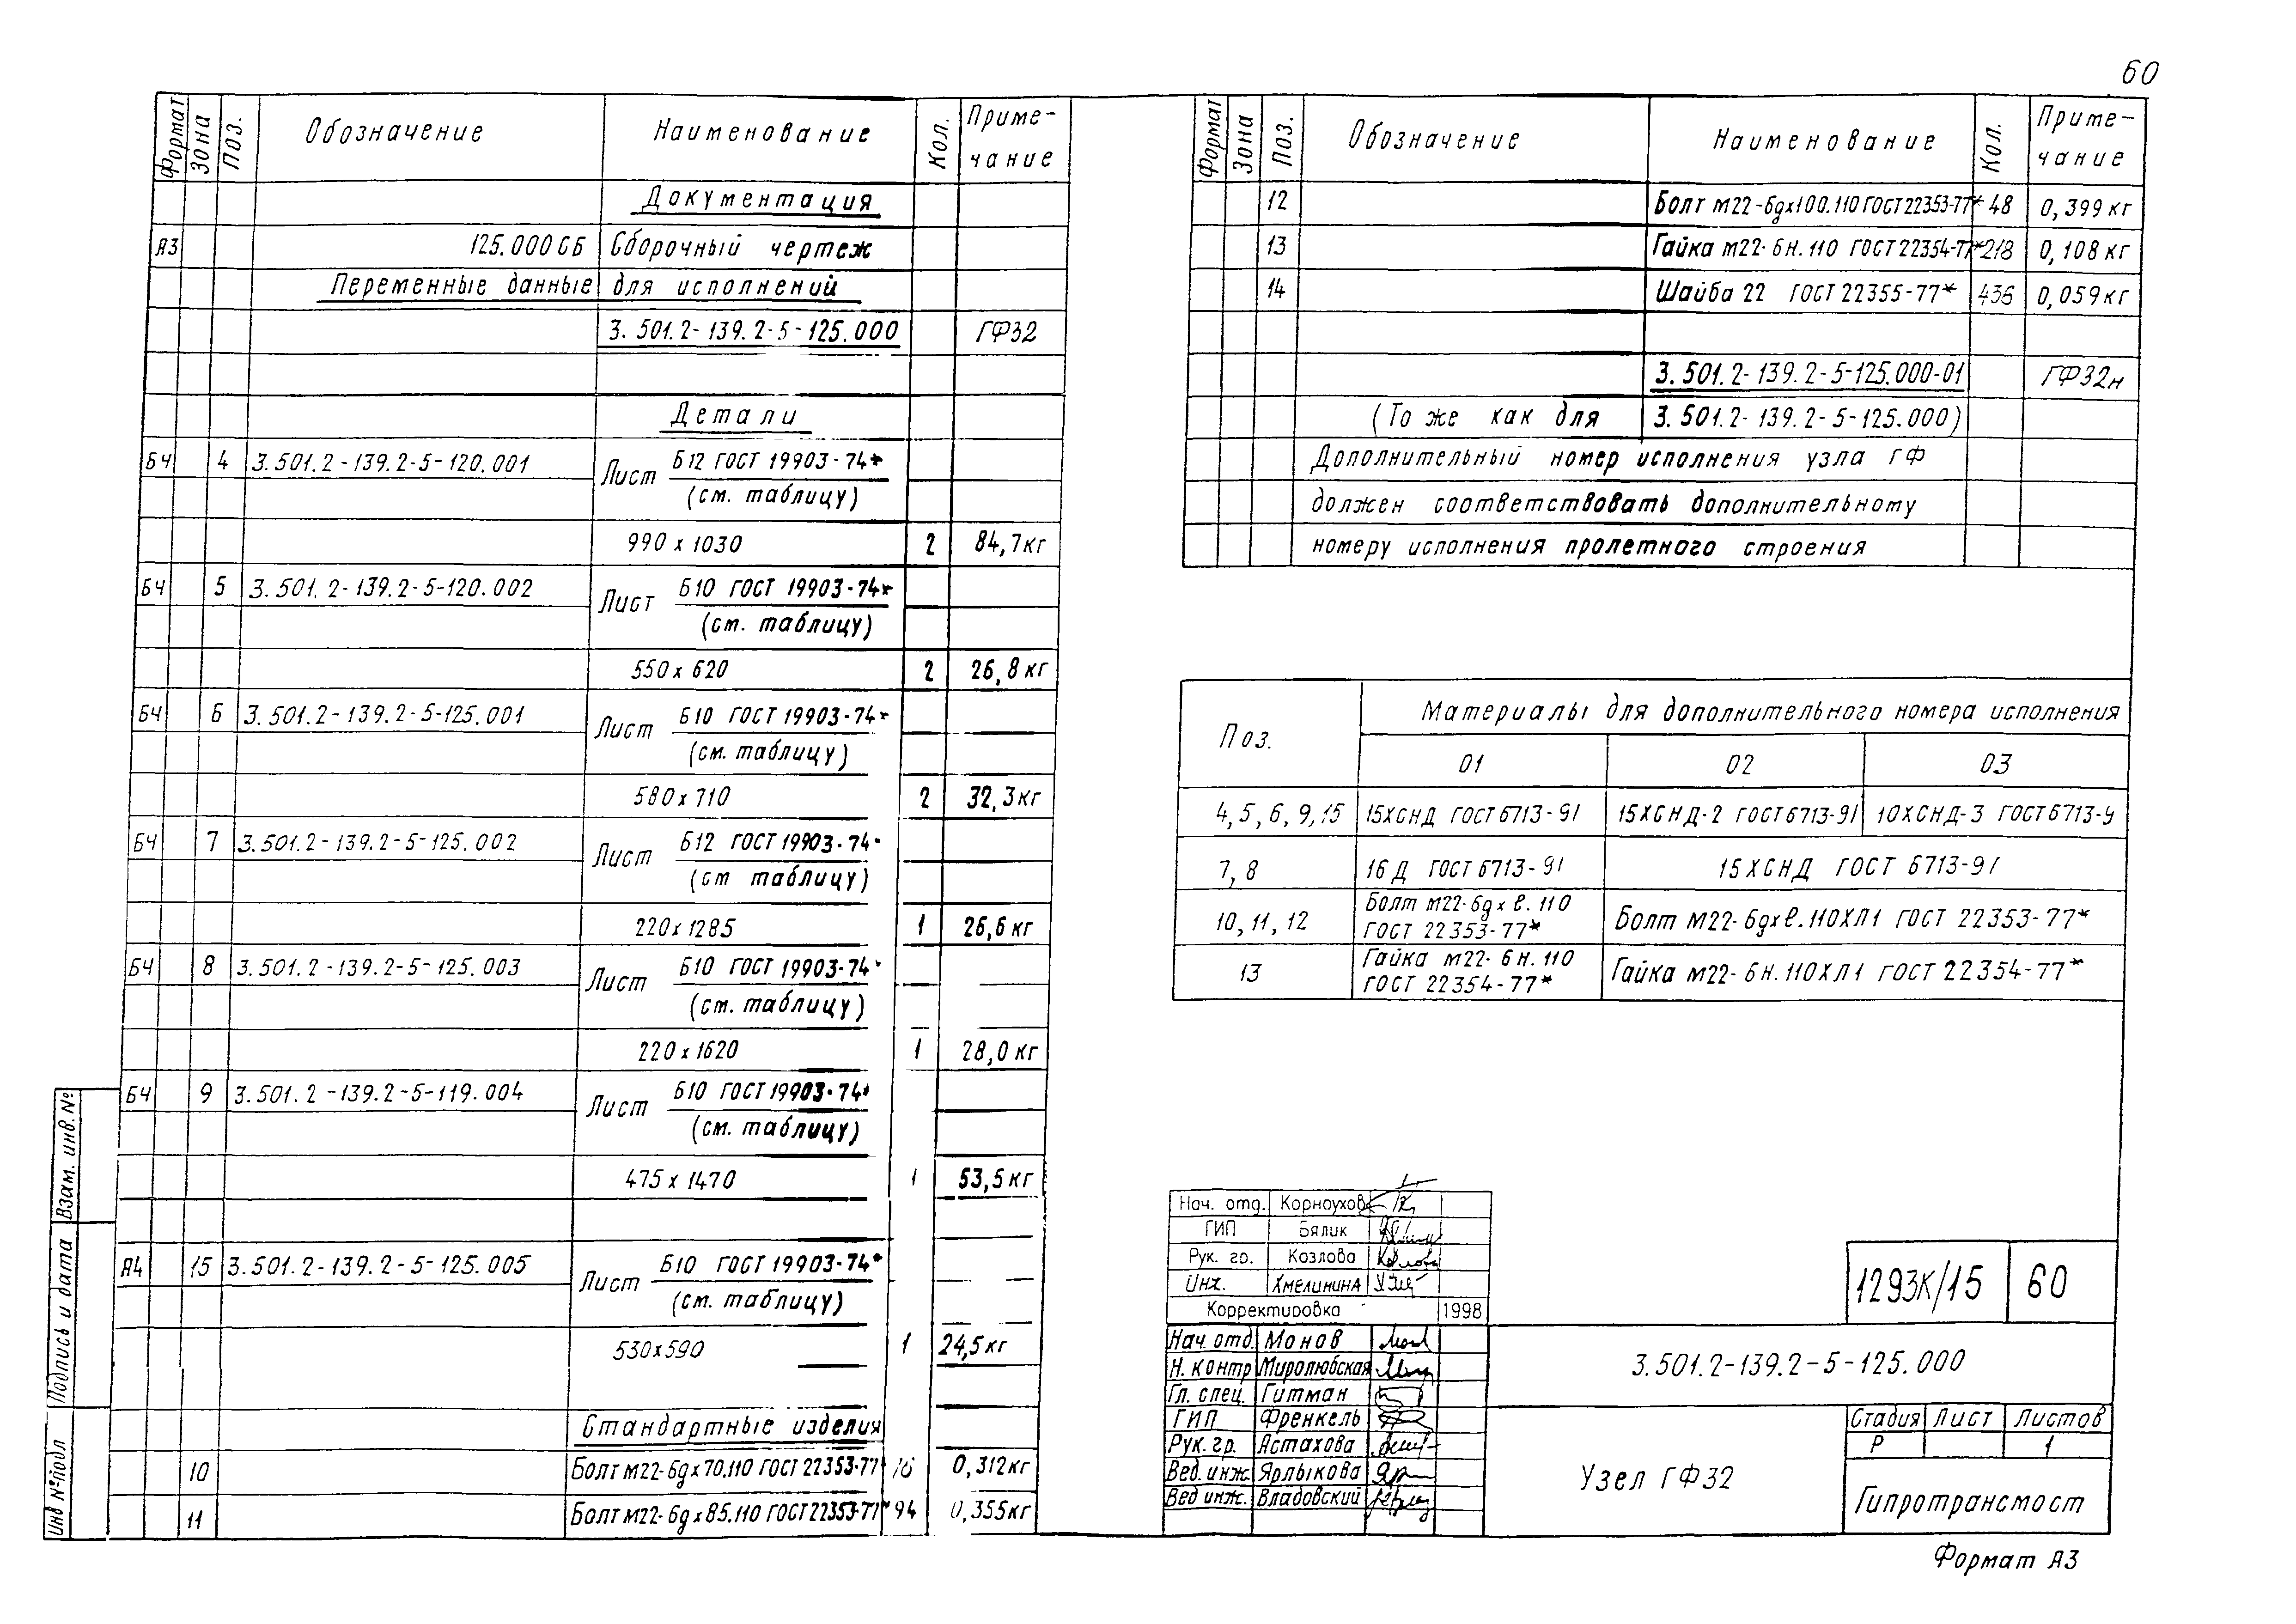 60
Формат Зона Поз. Обозначение Наименование Кол. Приме-чание
Документация
А3 125.000 СБ Сборочный чертеж
Переменные данные для исполнений
3.501.2-139.2-5-125.000 ГФ32
Детали
БЧ 4 3.501.2-139.2-5-120.001 Лист Б12 ГОСТ 19903-74*
(см. таблицу)
990 х 1030 2 84,7кг
БЧ 5 3.501.2-139.2-5-120.002 Лист Б10 ГОСТ 19903-74*
(см. таблицу)
550 х 620 2 26,8 кг
БЧ 6 3.501.2-139.2-5-125.001 Лист Б10 ГОСТ 19903-74*
(см. таблицу)
580 х 710 2 32,3 кг
БЧ 7 3.501.2-139.2-5-125.002 Лист Б12 ГОСТ 19903-74*
(см таблицу)
220 х 1285 1 26,6 кг
БЧ 8 3.501.2-139.2-5-125.003 Лист Б10 ГОСТ 19903-74*
(см. таблицу)
220 х 1620 1 28,0 кг
БЧ 9 3.501.2-139.2-5-119.004 Лист Б10 ГОСТ 19903-74*
(см. таблицу)
475 х 1470 1 53,5 кг
А4 15 3.501.2-139.2-5-125.005 Лист Б10 ГОСТ 19903-74*
(см. таблицу)
530х590 1 24,5 кг
Стандартные изделия
10 Болт М22-6gх70.110 ГОСТ 22353-77* 76 0,312кг
11 Болт М22-6gх85.110 ГОСТ 22353-77* 94 0,355кг
Взам. инв.№
Подпись и дата
Инв №подл
Формат Зона Поз. Обозначение Наименование Кол. Приме-чание
12 Болт М22-6gх100.110 ГОСТ 22353-77* 48 0,399 кг
13 Гайка М22-6Н.110 ГОСТ 22354-77* 218 0,108 кг
14 Шайба 22 ГОСТ 22355-77* 436 0,059 кг
3.501.2-139.2-5-125.000-01 ГФ32н
(То же как для 3.501.2-139.2-5-125.000)
Дополнительный номер исполнения узла ГФ
должен соответствовать дополнительному
номеру исполнения пролетного строения
Поз. Материалы для дополнительного номера исполнения
01 02 03
4, 5, 6, 9, 15 15ХСНД ГОСТ 6713-91 15ХСНД-2 ГОСТ 6713-91 10ХСНД-3 ГОСТ 6713-9
7, 8 16Д ГОСТ 6713-91 15ХСНД ГОСТ 6713-91
10, 11, 12 Болт М22-6gх ℓ.110
ГОСТ 22353-77* Болт М22-6gхℓ.110ХЛ1 ГОСТ 22353-77*
13 Гайка М22-6Н.110
ГОСТ 22354-77* Гайка М22-6Н.110ХЛ1 ГОСТ 22354-77*
Нач. отд. Корноухов
ГИП Бялик
Рук. гр. Козлова
Инж. Хмелинина
Корректировка 1998
Нач. отд Монов
Н. контр Миролюбская
Гл. спец. Гитман
ГИП Френкель
Рук. гр. Астахова
Вед. инж. Ярлыкова
Вед инж. Владовский
1293К/15 60
3.501.2-139.2-5-125.000
Узел ГФ32
Стадия Лист Листов
Р 1
Гипротрансмост
Формат А3